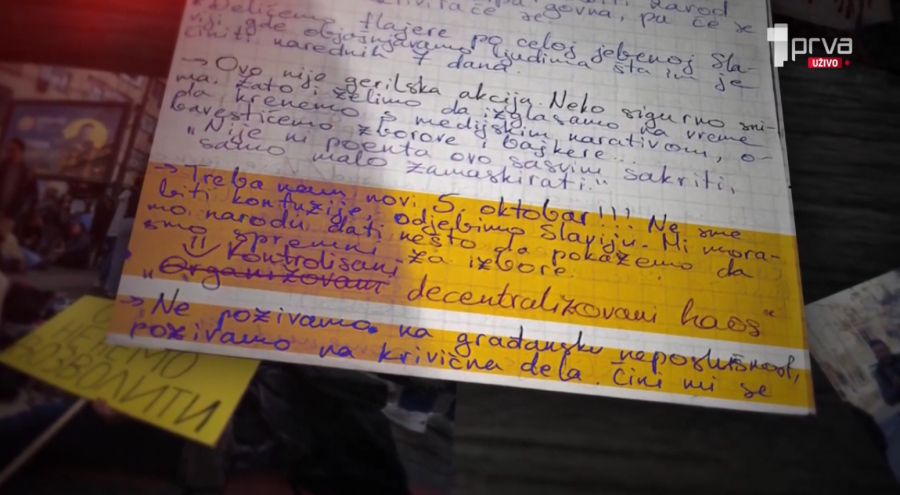 govna, pa će se
Delićemo flajere po celoj jebenoj Sla-
gde objašnjavamo ljudima šta im je
činiti narednih 7 dana.
→ Ovo nije gerilska akcija. Neko sigurno sni-
ma. Zato želimo da izglasamo na vreme
da krenemo s medijskim narativom, o-
bavestićemo zborove i bajkere...
"Nije ni poenta ovo sasvim sakriti,
samo malo zamaskirati."
→ Treba nam novi 5. oktobar!!! Ne sme
biti konfuzije, odjebimo Slaviju. Mi mora-
mo narodu dati nešto da pokažemo da
smo spremni za izbore.
Kontrolisani
"Organizovani decentralizovani haos"
→ Ne pozivamo na građansku neposlušnost,
pozivamo na krivična dela. Čini mi se
prva
UŽIVO
ВОЛИТИ